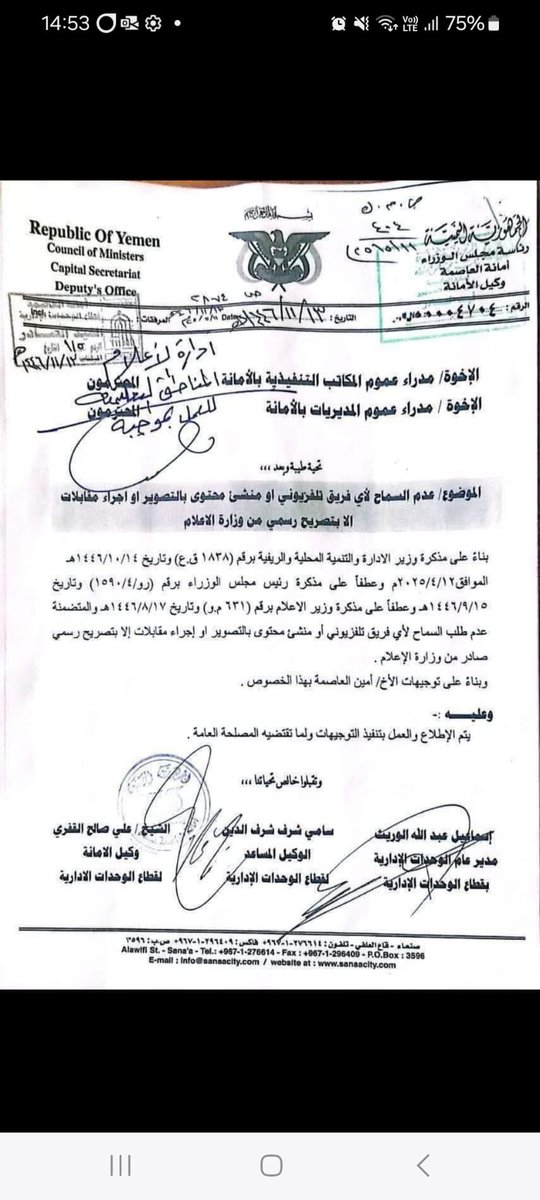 14:53
75%
Republic Of Yemen
Council of Ministers
Capital Secretariat
Deputy's Office
الجمهورية اليمنية
رئاسة مجلس الوزراء
أمانة العاصمة
وكيل الأمانة
الرقم:
التاريخ: ١٤٤٦/١١/١٣هـ
Date
المرفقات:
ادارة الاعلام
المناطق التعليمية
للعمل بموجبه
الإخوة/ مدراء عموم المكاتب التنفيذية بالأمانة المحترمون
الإخوة / مدراء عموم المديريات بالأمانة المحترمون
تحية طيبة وبعد ،،،
الموضوع/ عدم السماح لأي فريق تلفزيوني او منشئ محتوى بالتصوير او اجراء مقابلات
الا بتصريح رسمي من وزارة الاعلام
بناءً على مذكرة وزير الادارة والتنمية المحلية والريفية برقم (١٨٣٨ ق.ع) وتاريخ ١٤٤٦/١٠/١٤هـ
الموافق٢٠٢٥/٤/١٢م وعطفاً على مذكرة رئيس مجلس الوزراء برقم (رو/١٥٩٠/٤) وتاريخ
١٤٤٦/٩/١٥هـ وعطفاً على مذكرة وزير الاعلام برقم (٦٣١ م.و) وتاريخ ١٤٤٦/٨/١٧هـ والمتضمنة
عدم طلب السماح لأي فريق تلفزيوني أو منشئ محتوى بالتصوير او إجراء مقابلات إلا بتصريح رسمي
صادر من وزارة الإعلام .
وبناءً على توجيهات الأخ/ أمين العاصمة بهذا الخصوص .
وعليه :-
يتم الإطلاع والعمل بتنفيذ التوجيهات ولما تقتضيه المصلحة العامة .
وتقبلوا خالص تحياتنا ،،،
إسماعيل عبد الله الوريث
مدير عام الوحدات الإدارية
بقطاع الوحدات الإدارية
سامي شرف شرف الدين
الوكيل المساعد
لقطاع الوحدات الإدارية
الشيخ/ علي صالح القفري
وكيل الامانة
لقطاع الوحدات الادارية
صنعاء - قاع العلفي - تلفون: ٢٧٦٦١٤-١-٩٦٧+ فاكس: ٢٩٦٤٠٩-١-٩٦٧+ ص.ب: ٣٥٩٦
Alawlfi St. - Sana'a - Tel.: +967-1-276614 - Fax : +967-1-296409 - P.O.Box : 3596
E-mail : info@sanaacity.com / website at : www.sanaacity.com